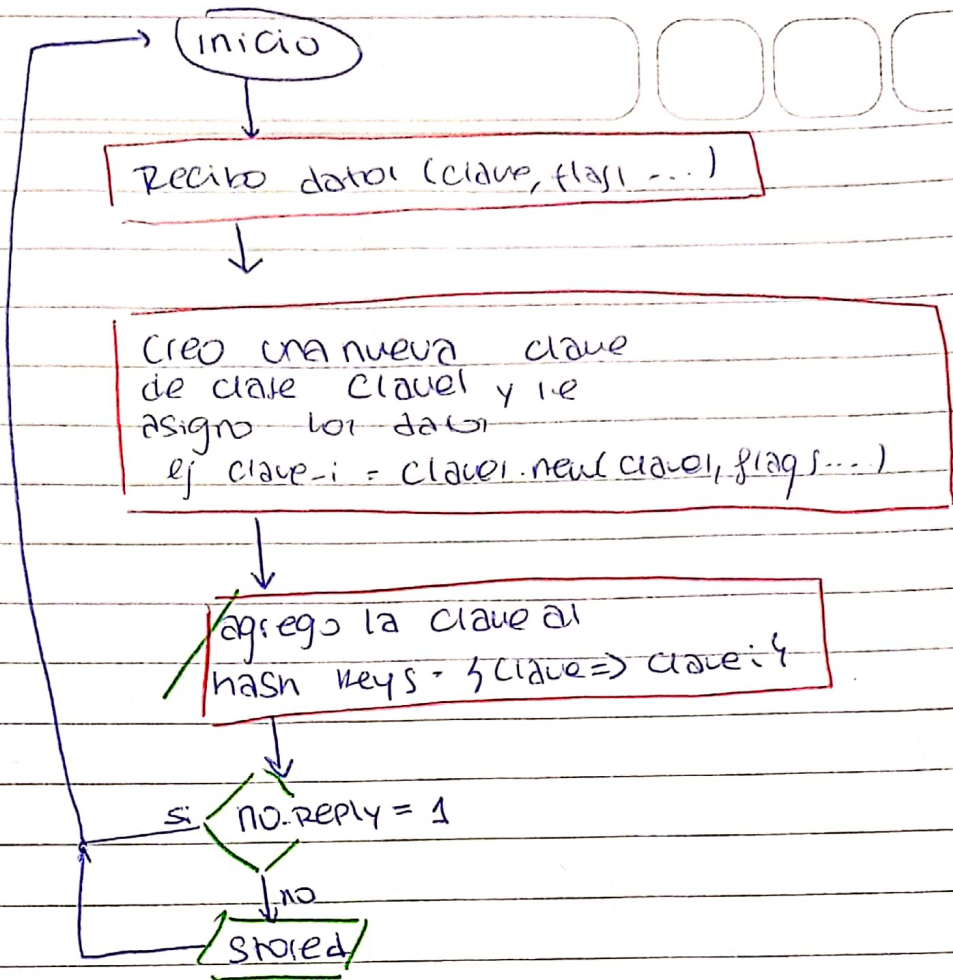 inicio
Recibo datos (clave, flags ...)
Creo una nueva clave
de clase Claves y le
asigno los datos
ej clave_i = Claves.new(clave1, flags...)
agrego la clave al
hash keys = {clave => clave_i}
si
no.REPLY = 1
no
stored